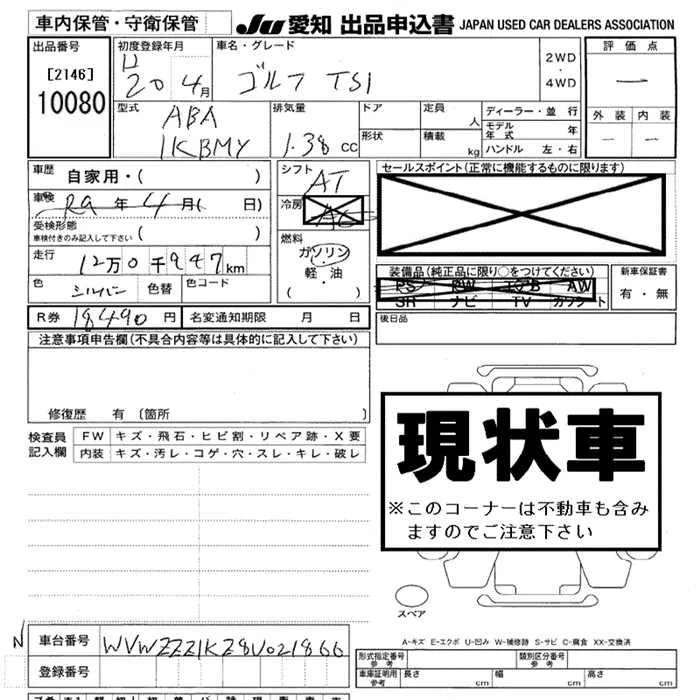 車内保管・守衛保管
JU 愛知 出品申込書 JAPAN USED CAR DEALERS ASSOCIATION
出品番号
[2146]
10080
初度登録年月
20 4月
車名・グレード
ゴルフ TSI
2WD
・
4WD
評価点
一
外装 内装
一 一
型式
ABA
1KBMY
排気量
1.38 cc
ドア
定員 人
形状
積載 kg
ディーラー・並行
モデル年式 年
ハンドル 左・右
車歴 自家用・( )
車検 R9 年 4 月( 日)
受検形態
車検付きのみ記入して下さい ( )
走行 12万0千947km
色 シルバー 色替 色コード
シフト AT
冷房 AC
燃料
ガソリン
軽・油
( ・ )
セールスポイント(正常に機能するものに限ります)
装備品(純正品に限り○をつけてください)
PS PW エアB AW
SH ナビ TV カワシート
新車保証書
有・無
R券 18490 円 名変通知期限 月 日
後日品
注意事項申告欄(不具合内容等は具体的に記入して下さい)
修復歴 有 [箇所 ]
検査員
記入欄
FW キズ・飛石・ヒビ割・リペア跡・X要
内装 キズ・汚レ・コゲ・穴・スレ・キレ・破レ
現状車
※このコーナーは不動車も含み
ますのでご注意下さい
スペア
A-キズ E-エクボ U-凹み W-補修跡 S-サビ C-腐食 XX-交換済
N 車台番号 WVWZZZ1KZ8U021866
登録番号
形式指定番号
参考
類別区分番号
参考
車庫証明用
参考
長さ cm 幅 cm 高さ cm